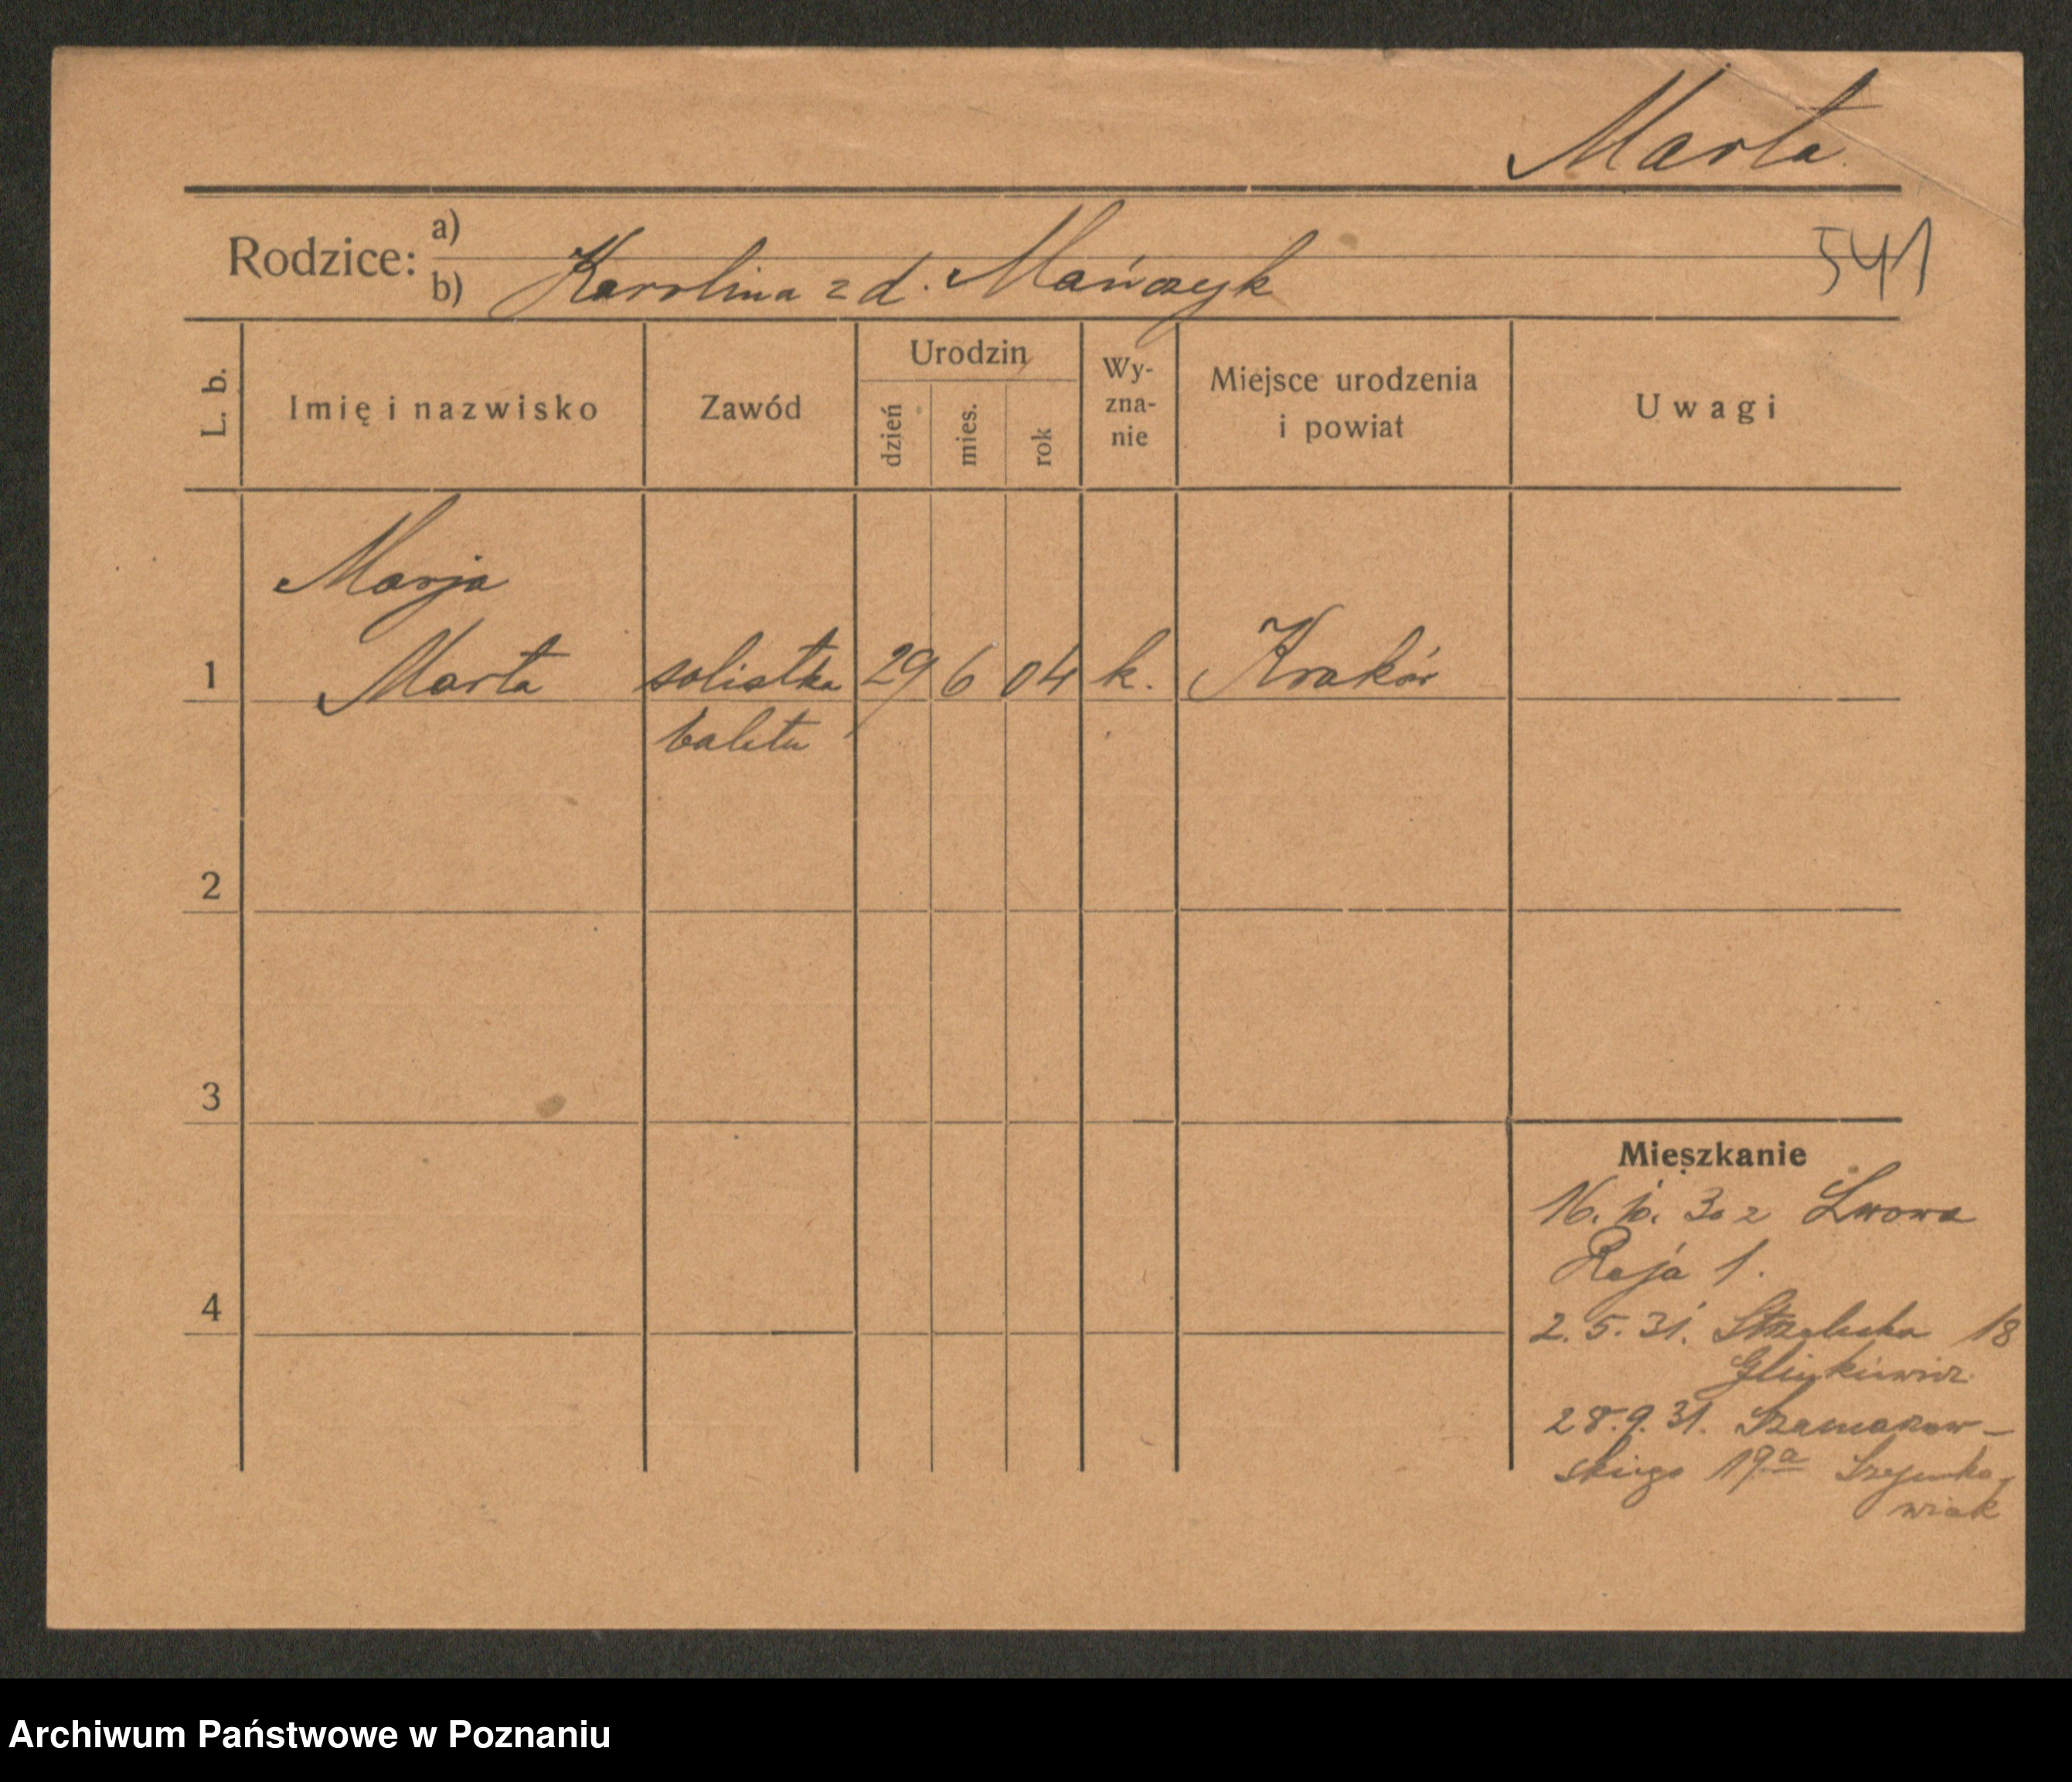 Marta
Rodzice: a)
b) Karolina z d. Mańczyk
541
L. b.
Imię i nazwisko
Zawód
Urodzin
dzień
mies.
rok
Wy-
zna-
nie
Miejsce urodzenia
i powiat
Uwagi
Marja
1 Marta solistka 29 6 04 k. Kraków
baletu
2
3
4
Mieszkanie
16. 10. 30 z Lwowa
Reja 1.
2. 5. 31. Strzelecka 18
Glinkiewicz
28. 9. 31. Szamarzew-
skiego 19a
wiak
Archiwum Państwowe w Poznaniu